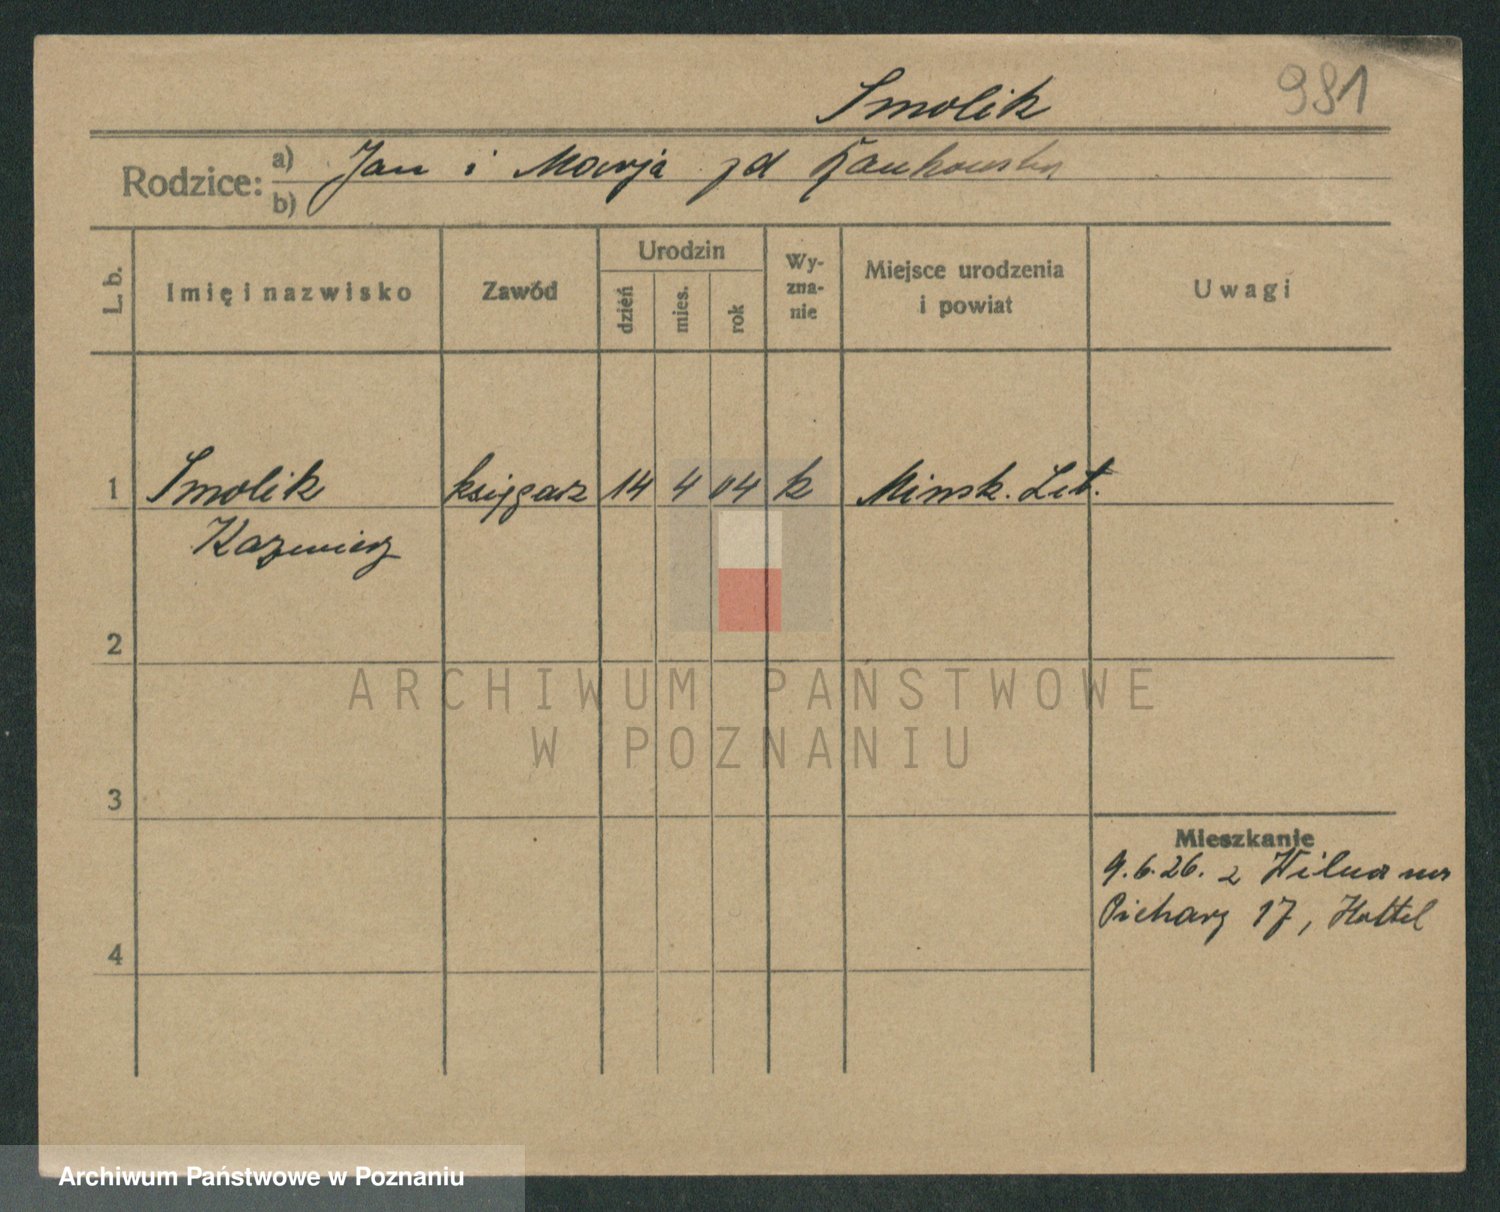 Smolik
981
Rodzice: a) Jan i Marja zd
b)
L. b.
Imię i nazwisko
Zawód
Urodzin
dzień
mies.
rok
Wy-
zna-
nie
Miejsce urodzenia
i powiat
Uwagi
1 Smolik księgarz 14 4 04 k Minsk. Lit.
Kazimierz
2
ARCHIWUM PAŃSTWOWE
W POZNANIU
3
Mieszkanie
9.6.26. z Wilna
17, Hottel
4
Archiwum Państwowe w Poznaniu